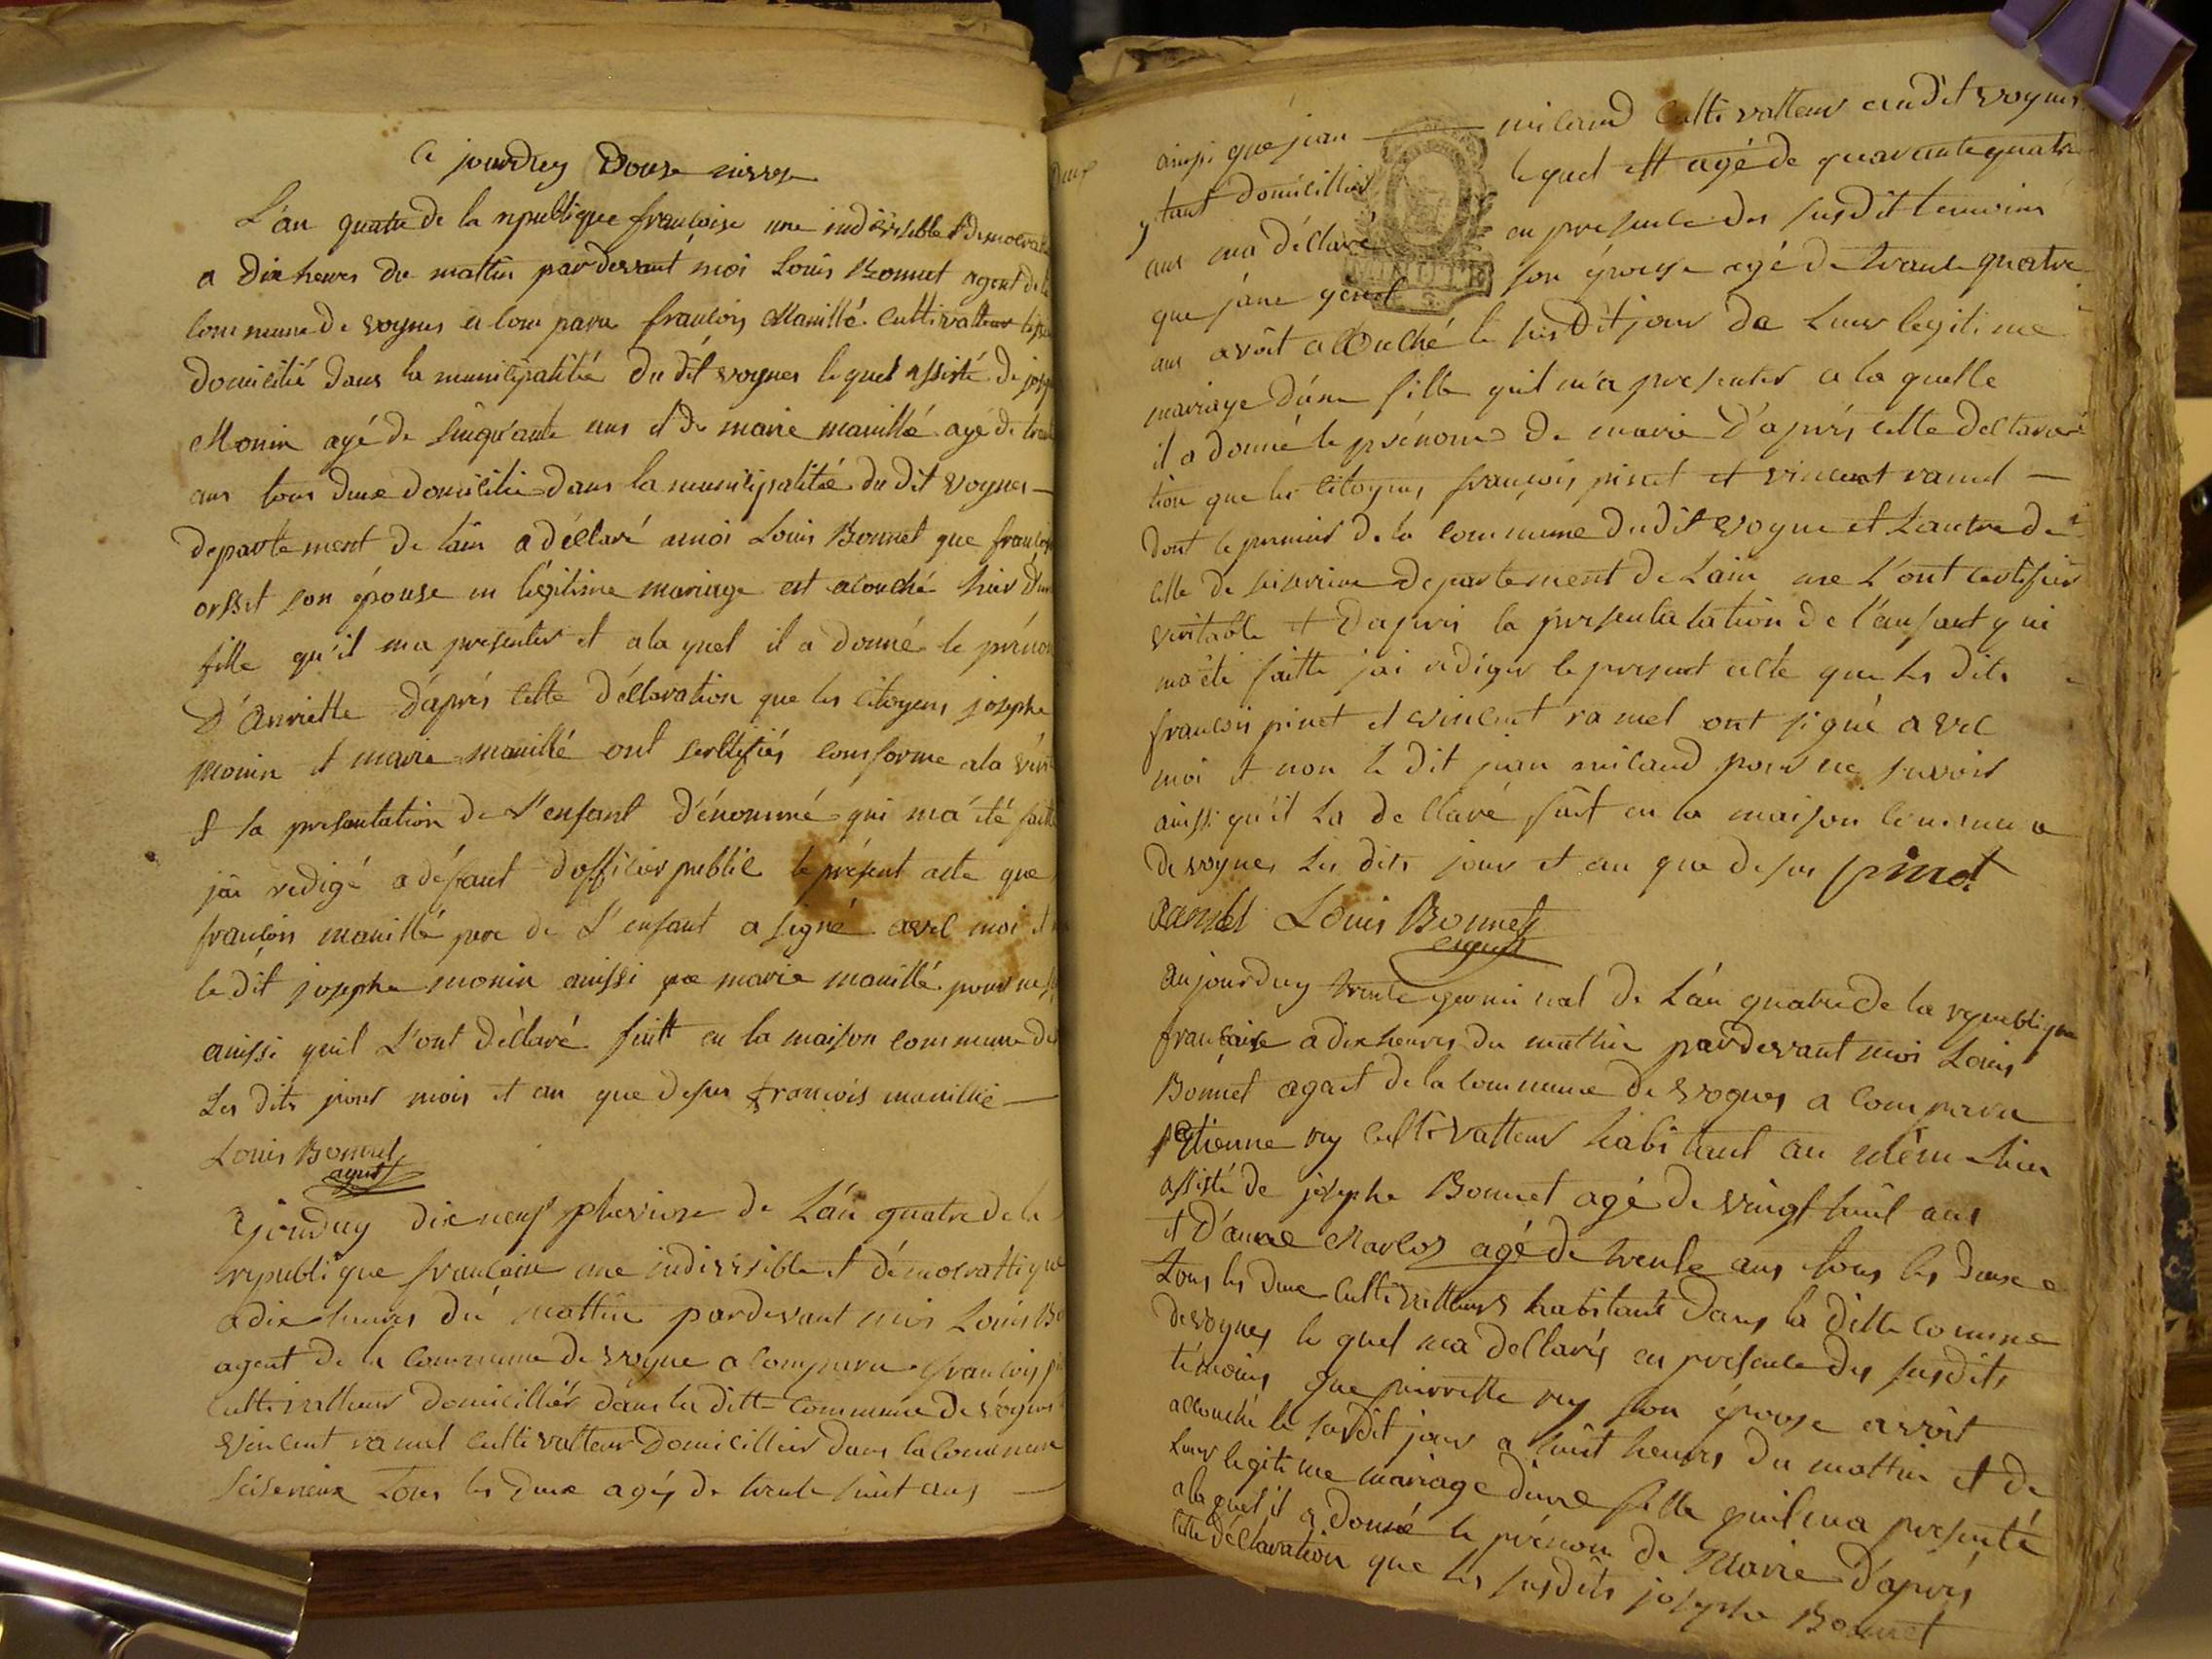 ce jourduy Douse nivose
L'an quatre de la republique françoise une indivisible et democrati
a dix heures du mattin pardevant moi Louis Bonnet agent de la
commune de vognes a comparu françois Manillé cultivatteur
domicilié dans la municipalitée du dit vognes le quel assisté de josep
Monin agé de sinquante ans et de marie manillé agé de trent
ans tous deux domicilié dans la municipalitée du dit vognes —
departement de lain a déclaré a moi Louis Bonnet que françoise
orsset son épouse en légitime mariage est acouché hier d'une
fille qu'il ma presenter et a la quel il a donné le prénom
D'Anriette d'aprés cette déclaration que les citoyens josephe
monin et marie manillé ont certifiés comforme a la véri
et la presentation de l'enfant dénommé qui ma été faitte
jai redigé a défaut d'officier public le présent acte que
françois manillé pere de L'enfant a signé avec moi et n
le dit josephe monin aussi que marie manillé pour ne s
ainssi quil l'ont déclaré fait en la maison commune de
Les dits jour mois et an que desus françois manillié —
Louis Bonnet
agent
jourduy dix neuf pluviose de L'an quatre de la
republique francaise une indivisible et démocrattique
a dix heures du mattin pardevant moi Louis Bo
agent de la commune de vogne a comparu françois pi
cultivatteur domicillier dans la ditte commune de vognes
vincent ramel cultivatteur domicillier dans la commune
seiserieux tous les deux agés de trente huit ans —
ainssi que jean — milaud cultivatteur au dit vognes
y tant domicillier le quel est agé de quarante quatre
ans ma déclaré en presence des susdit temoins
que jane genet son épouse agé de trante quatre
ans avoit acouché le susdit jour de Leur legitime
mariage d'une fille quil m'a presenter a la quelle
il a donné le prénom de marie d'aprés cette declara
tion que les citoyens françois pinet et vincent ramel —
dont le premier de la commune du dit vogne et Lautre de
celle de seiserieux departement de Lain me L'ont certifier
veritable et d'aprés la presentatation de l'enfant qui
ma été faitte jai rediger le present acte que les dits
françois pinet et vincent ramel ont signé avec
moi et non le dit jean milaud pour ne savoir
ainssi qu'il La declaré fait en la maison commune
de vognes Les dits jour et an que desus pinet
Ramel Louis Bonnet
agent
aujourduy trente germinal de L'an quatre de la republique
francaise a dix heures du mattin pardevant moi Louis
Bonnet agent de la commune de vognes a comparu
Etienne rey cultivatteur habitant au même lieu
assisté de josephe Bonnet agé de vingt huit ans
et d'anne Marlos agé de trente ans tous les deux
tous les deux cultivatteurs habitants dans la ditte commune
de vognes le quel ma declarés en presence des susdits
témoins que pierrette rey son épouse avoit
accouché le susdit jour a huit heures du mattin et de
Leur legitime mariage d'une fille quil ma presenté
a la quel il a donné le prénom de Marie d'aprés
cette déclaration que les susdits josephe Bonnet